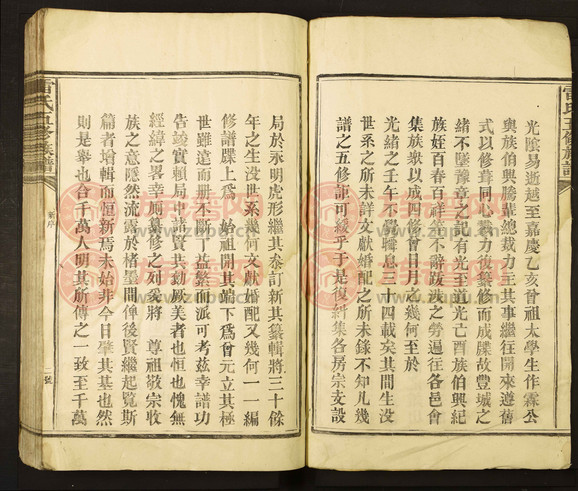 雷氏五修族譜
光陰易逝越至嘉慶乙亥曾祖太學生作霖公
與族伯興騰輩總裁力主其事繼往開來遵舊
式以修葺同心戮力復纂修而成牒故豐城之
緒不墜豫章之記有光至道光己酉族伯興紀
族姪百春百祥等不辭跋涉之勞過往各邑會
集族眾以成四修曾日月之幾何至於
光緒之壬午不覺瞬息三十四載矣其間生没
世系之所未詳文獻婚配之所未錄不知凡幾
譜之五修詎可緩乎于是復糾集各房宗支設
局於永明虎形繼其叅訂新其纂輯將三十餘
年之生没世系幾何文獻婚配又幾何一一編
修譜牒上爲 始祖開其端下爲曾元立其極
世雖遠而册不斷丁益繁而派可考兹幸譜功
告竣實賴局中諸賢共勷厥美者也恒也愧無
經緯之畧幸厠纂修之列爰將 尊祖敬宗收
族之意隱然流露於楮墨間俾後賢繼起覽斯
篇者增輯而恒新焉未始非今日肇其基也然
則是舉也合千萬人明其所傳之一致至千萬
雷氏五修族譜
新序
二號